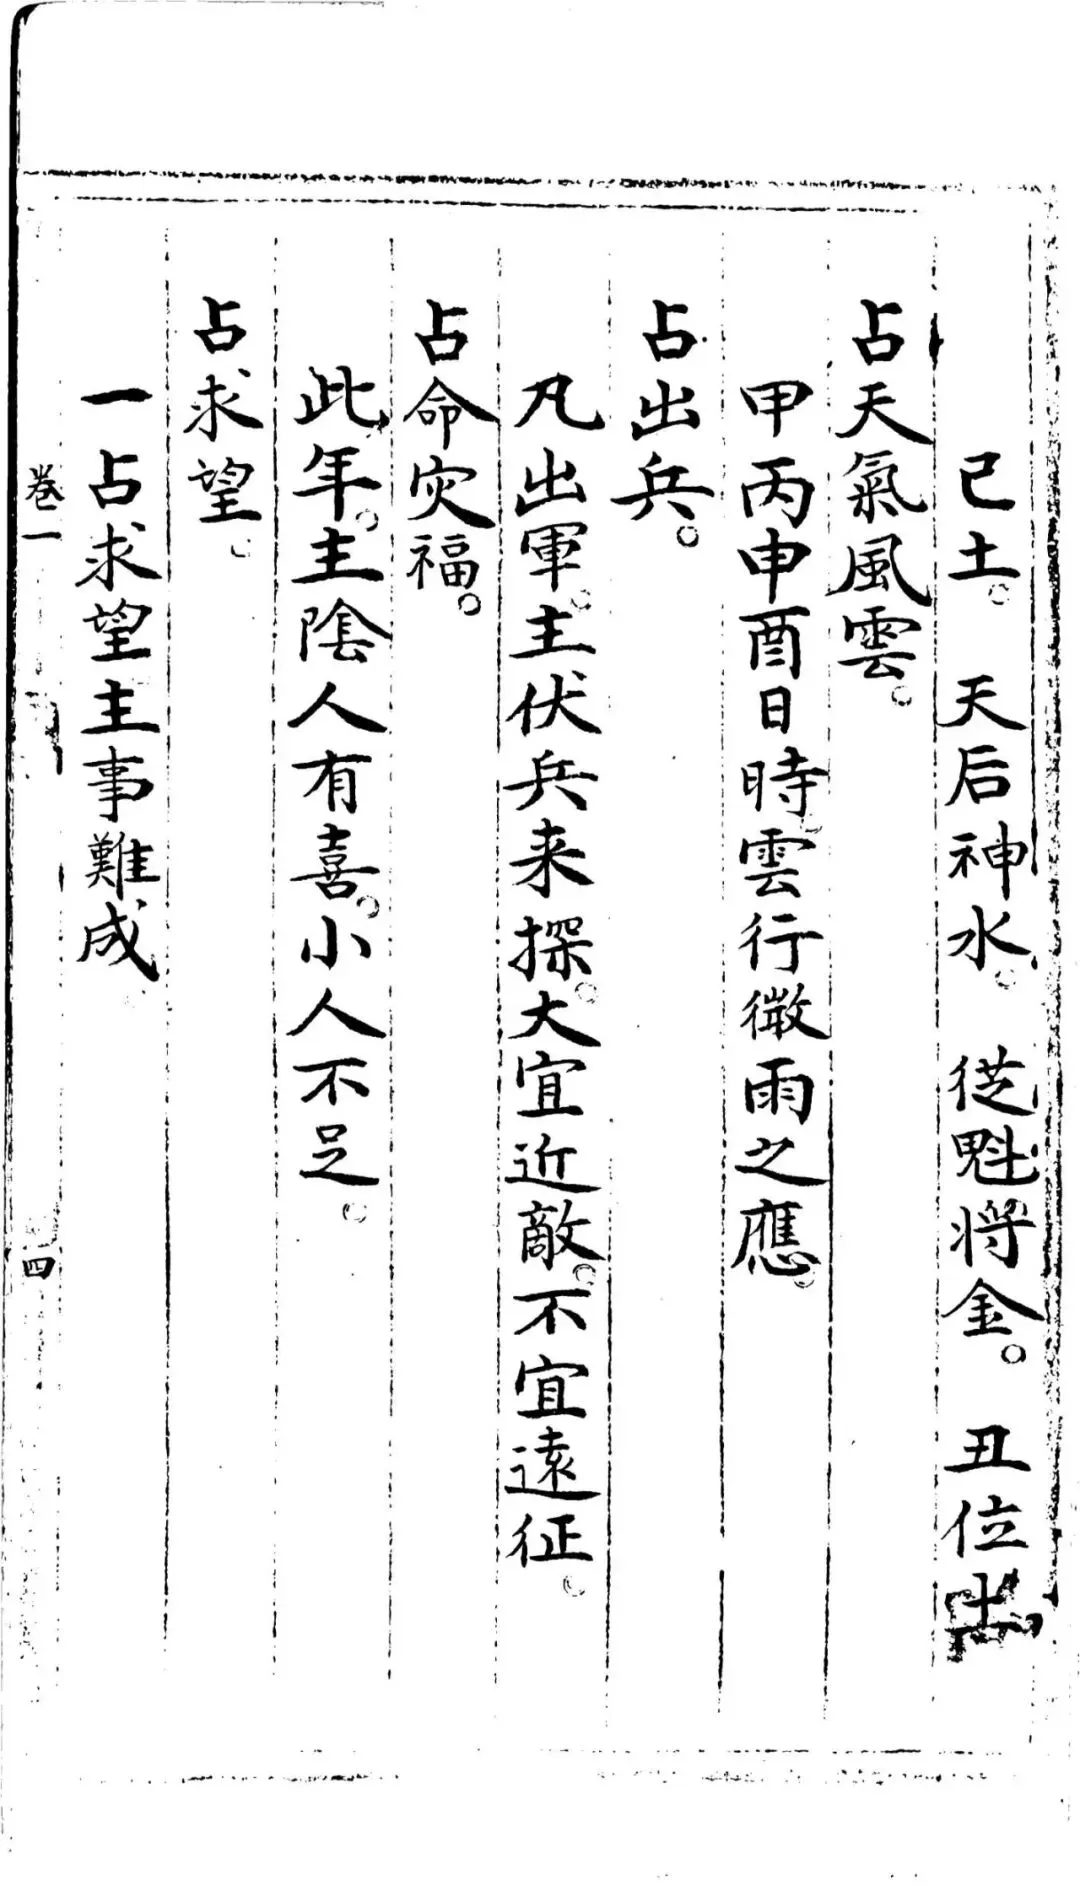 己土。　天后神水。　從魁将金。　丑位土
占天氣風雲。
甲丙申酉日時雲行微雨之應。
占出兵。
凡出軍。主伏兵来探。大宜近敵。不宜遠征。
占命灾福。
此年。主陰人有喜。小人不足。
占求望。
一占求望主事難成
卷一
四